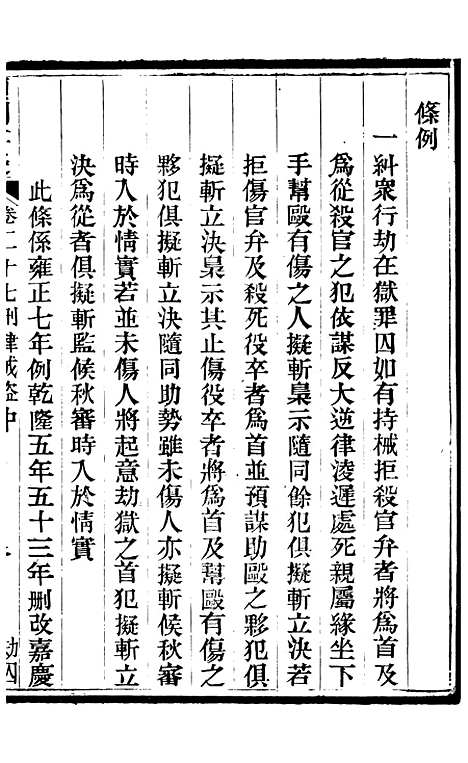 條例
一糾衆行劫在獄罪囚如有持械拒殺官弁者將爲首及
爲從殺官之犯依謀反大逆律淩遲處死親屬緣坐下
手幫毆有傷之人擬斬梟示隨同餘犯俱擬斬立決若
拒傷官弁及殺死役卒者爲首並預謀助毆之夥犯俱
擬斬立決梟示其止傷役卒者將爲首及幫毆有傷之
夥犯俱擬斬立決隨同助勢雖未傷人亦擬斬候秋審
時入於情實若並未傷人將起意劫獄之首犯擬斬立
決爲從者俱擬斬監候秋審時入於情實
此條係雍正七年例乾隆五年五十三年删改嘉慶
卷二十七刑律賊盜中
劫囚